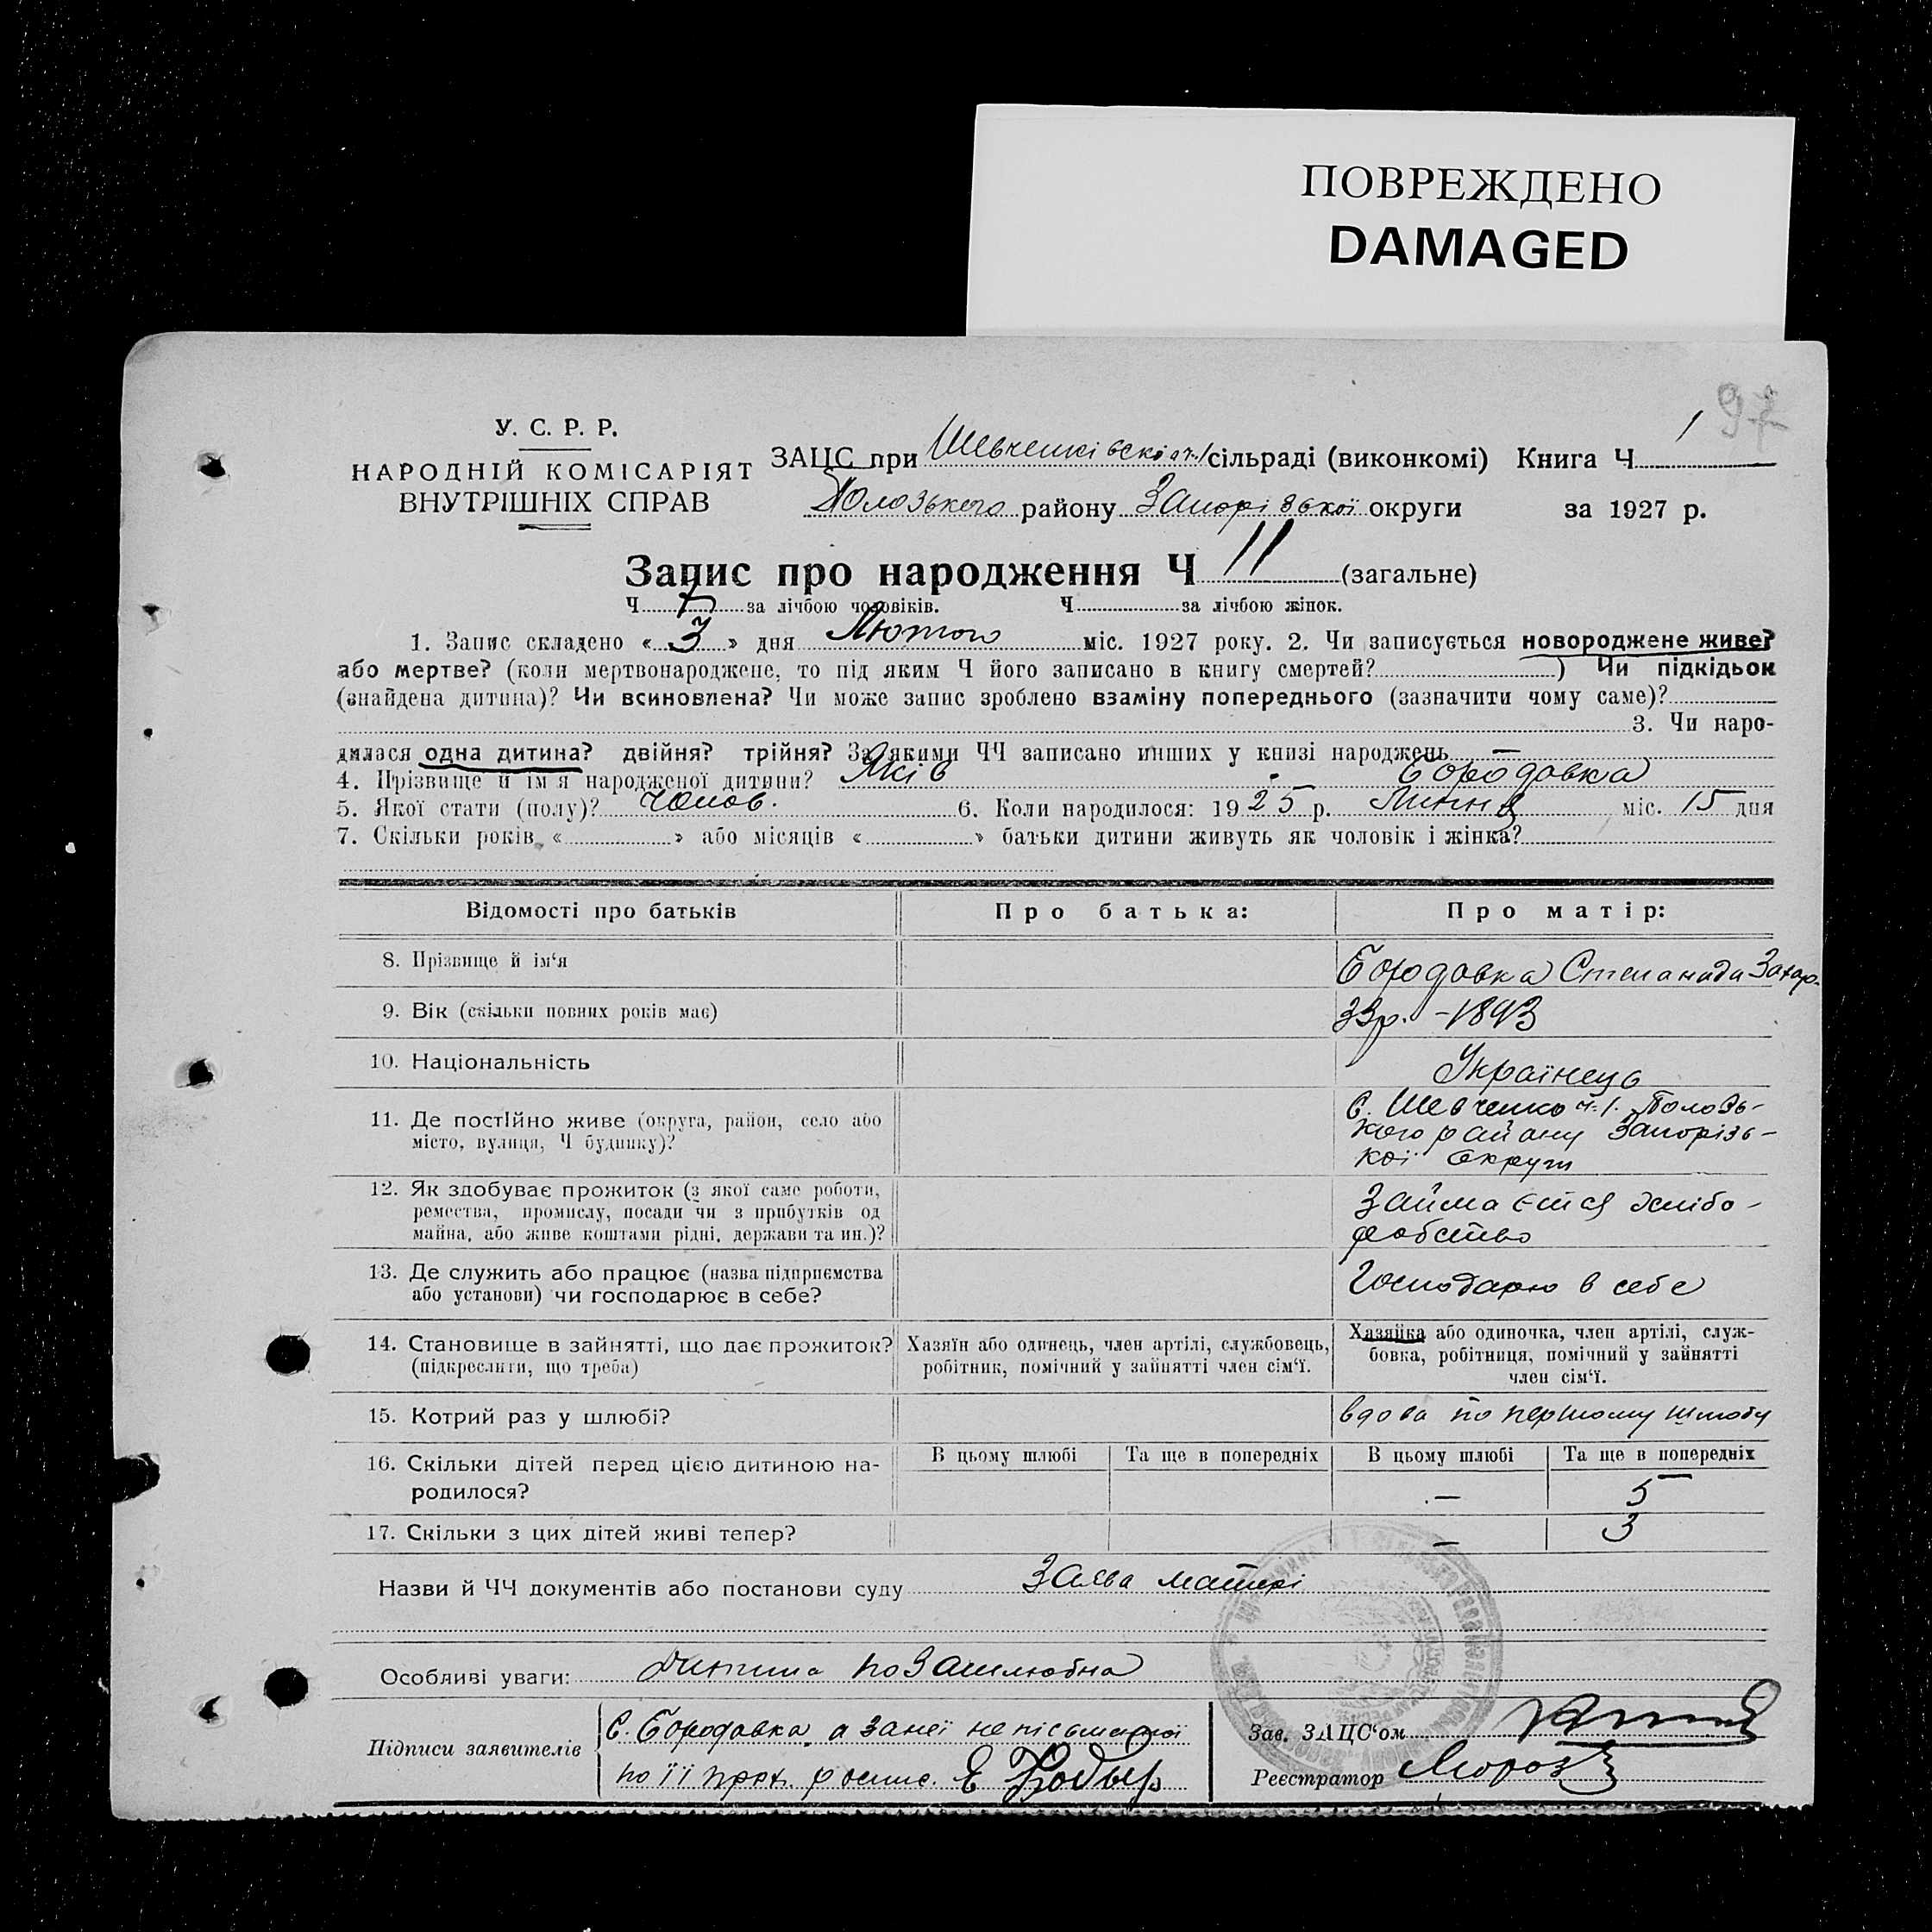 ПОВРЕЖДЕНО
DAMAGED
97
У. С. Р. Р.
НАРОДНІЙ КОМІСАРІЯТ
ВНУТРІШНІХ СПРАВ
ЗАЦС при Шевченківскі ч.1 сільраді (виконкомі) Книга Ч 1
Полозького району Запорізької округи за 1927 р.
Запис про народження Ч 11 (загальне)
Ч 7 за лічбою чоловіків. Ч за лічбою жінок.
1. Запис складено « 3 » дня Лютого міс. 1927 року. 2. Чи записується новороджене живе?
або мертве? (коли мертвонароджене, то під яким Ч його записано в книгу смертей? ) Чи підкідьок
(знайдена дитина)? Чи всиновлена? Чи може запис зроблено взаміну попереднього (зазначити чому саме)?
3. Чи наро-
дилася одна дитина? двійня? трійня? За якими ЧЧ записано инших у книзі народжень —
4. Прізвище й ім'я народженої дитини? Яків Бородавка
5. Якої стати (полу)? чолов. 6. Коли народилося: 1925 р. Липня міс. 15 дня
7. Скільки років « » або місяців « » батьки дитини живуть як чоловік і жінка?
Відомості про батьків Про батька: Про матір:
8. Прізвище й ім'я Бородавка Степанида Захар.
9. Вік (скільки повних років має) 33 р. - 1893
10. Національність Українець
11. Де постійно живе (округа, район, село або
місто, вулиця, Ч будинку)?
С. Шевченко ч.1. Полозь-
кого району Запорізь-
кої округи
12. Як здобуває прожиток (з якої саме роботи,
ремества, промислу, посади чи з прибутків од
майна, або живе коштами рідні, держави та ин.)?
Займаєтся хлібо-
робство
13. Де служить або працює (назва підприємства
або установи) чи господарює в себе?
Господарю в себе
14. Становище в зайнятті, що дає прожиток?
(підкреслити, що треба)
Хазяїн або одинець, член артілі, службовець,
робітник, помічний у зайнятті член сім'ї.
Хазяйка або одиночка, член артілі, служ-
бовка, робітниця, помічний у зайнятті
член сім'ї.
15. Котрий раз у шлюбі? вдова по першому шлюбу
16. Скільки дітей перед цією дитиною на-
родилося?
В цьому шлюбі Та ще в попередніх В цьому шлюбі Та ще в попередніх
— 5
17. Скільки з цих дітей живі тепер? — 3
Назви й ЧЧ документів або постанови суду Заява матері
Особливі уваги: дитина позашлюбна
Підписи заявителів
С. Бородавка, а за неї неписьменої
по її прох. роспис.
Зав. ЗАЦС'ом
Реєстратор Мороз